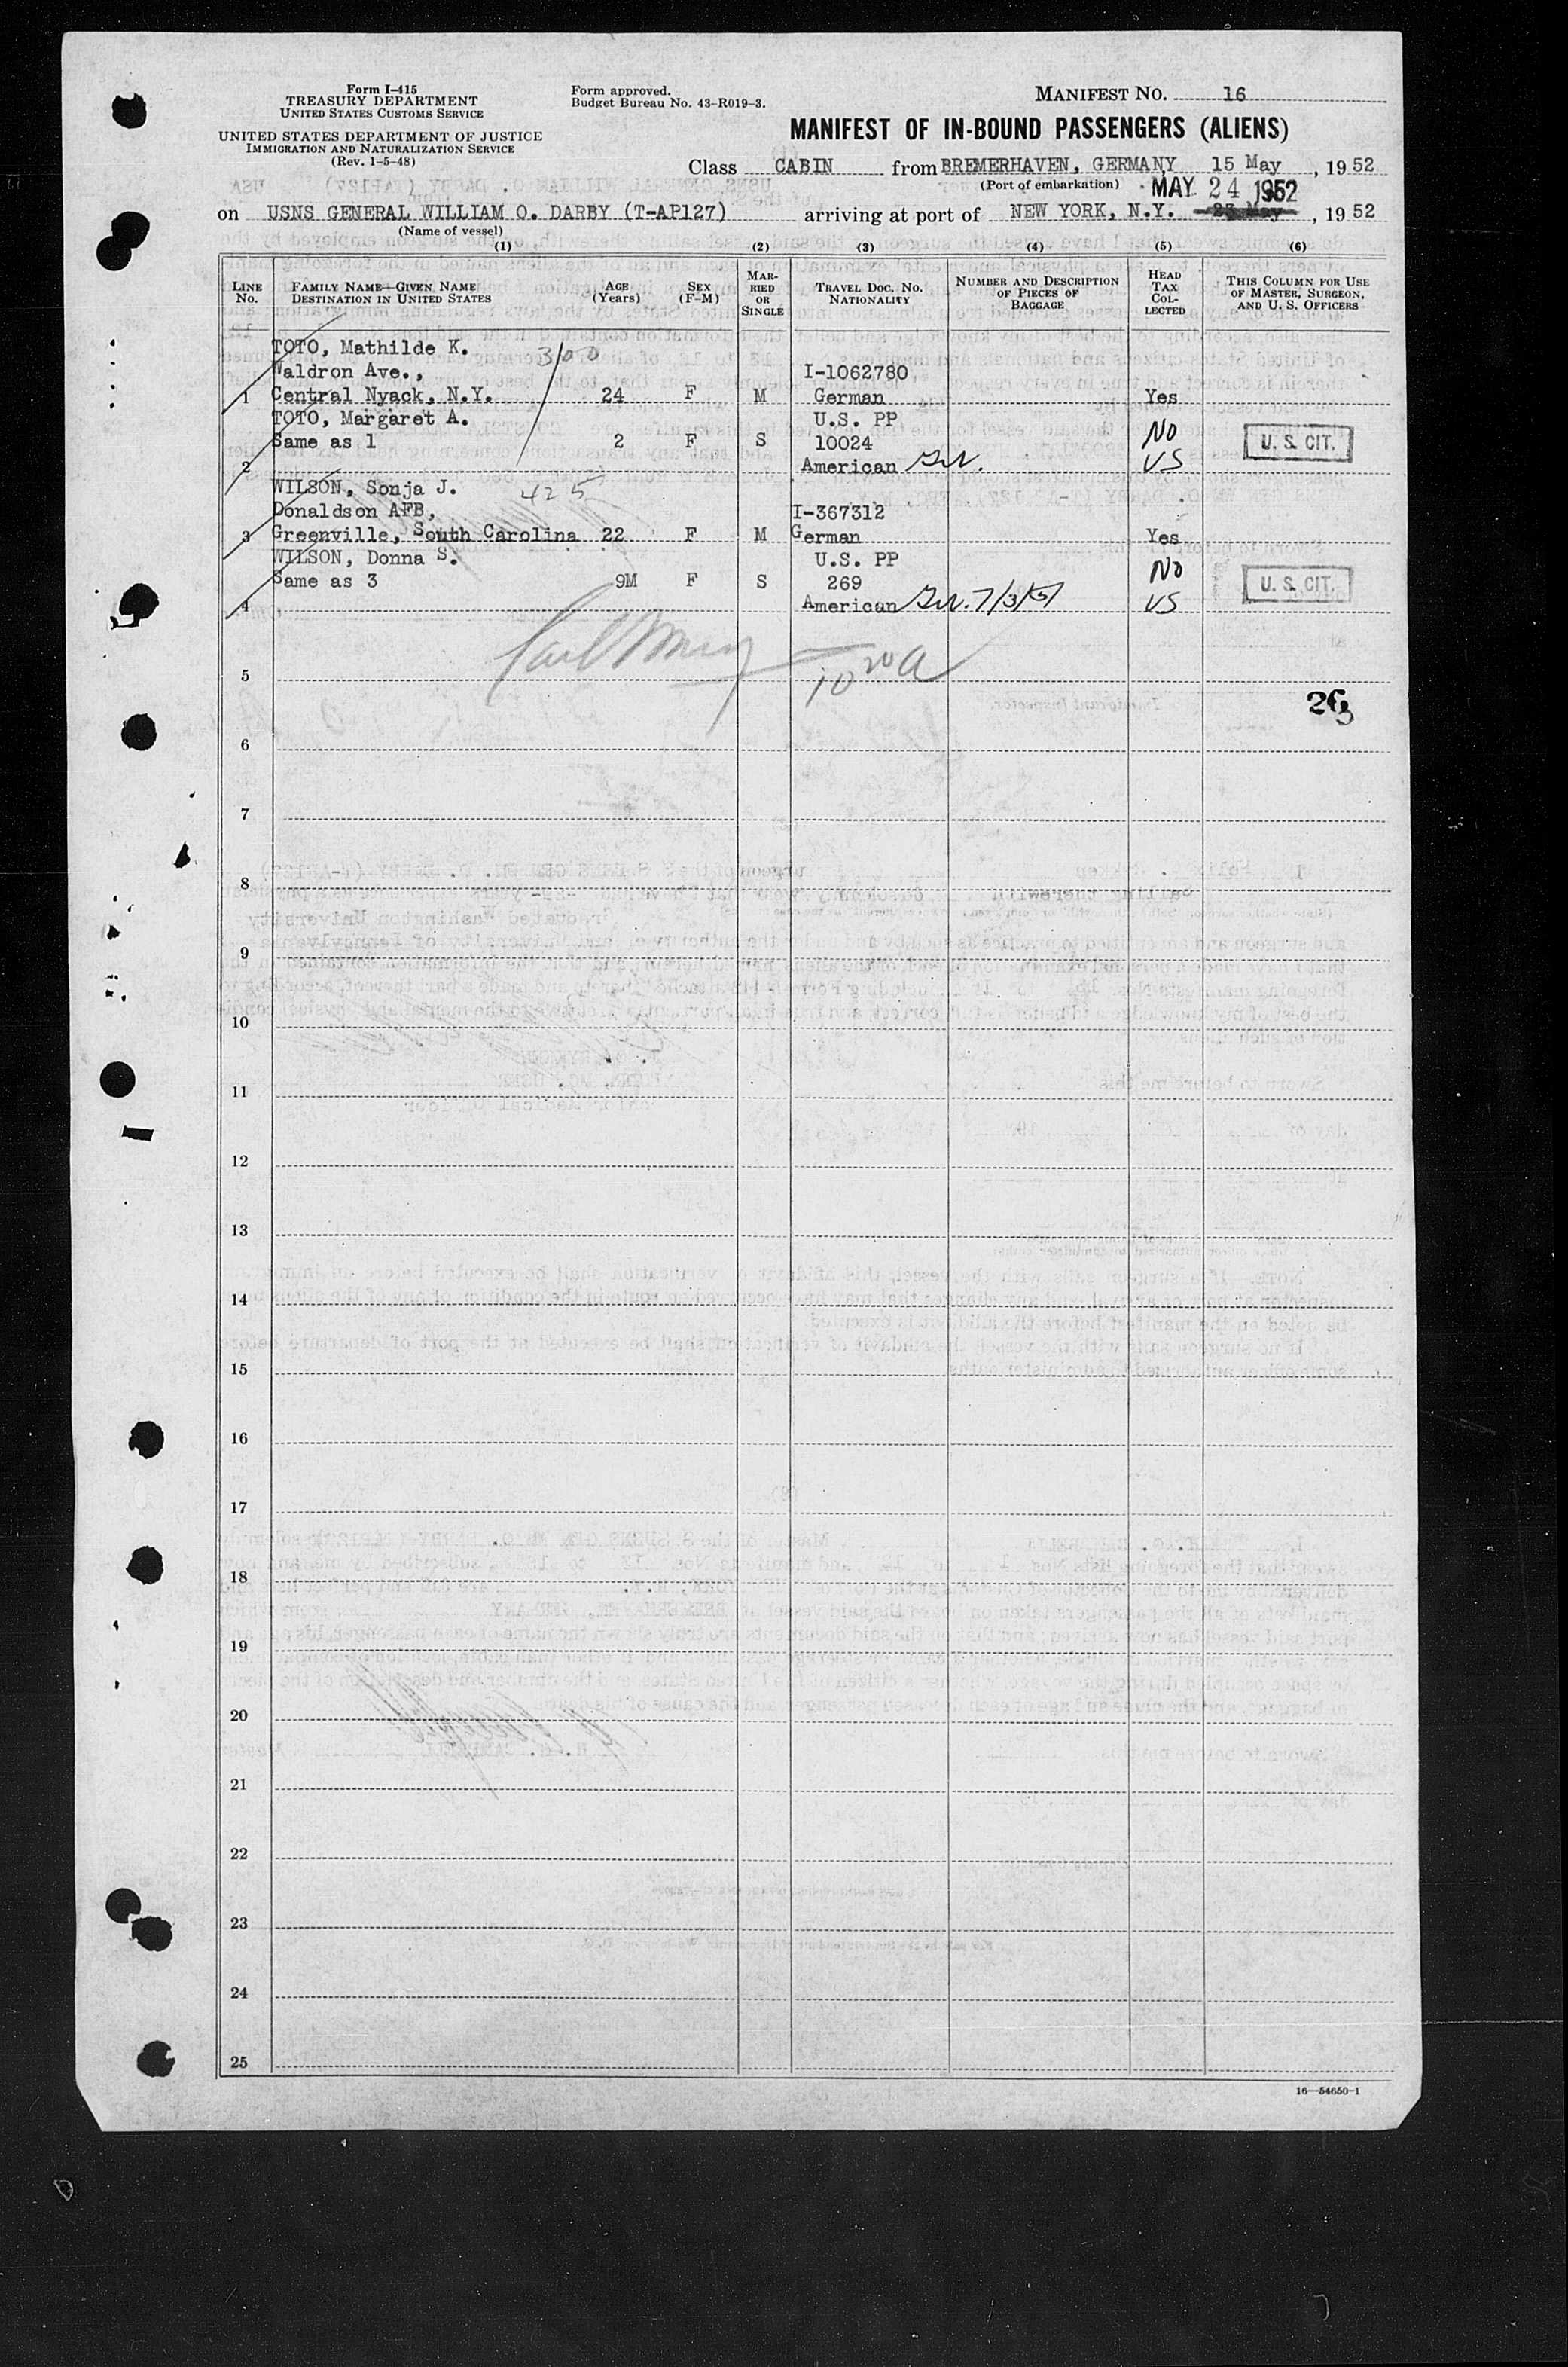 Form I-415
TREASURY DEPARTMENT
UNITED STATES CUSTOMS SERVICE
UNITED STATES DEPARTMENT OF JUSTICE
IMMIGRATION AND NATURALIZATION SERVICE
(Rev. 1-5-48)
Form approved.
Budget Bureau No. 43-R019-3.
MANIFEST NO. 16
MANIFEST OF IN-BOUND PASSENGERS (ALIENS)
Class CABIN from BREMERHAVEN, GERMANY 15 May, 1952
(Port of embarkation)
MAY 24 1952
on USNS GENERAL WILLIAM O. DARBY (T-AP127) arriving at port of NEW YORK, N.Y. 23 May, 1952
(Name of vessel)
(1) (2) (3) (4) (5) (6)
LINE NO.
FAMILY NAME—GIVEN NAME
DESTINATION IN UNITED STATES
AGE (Years)
SEX (F-M)
MARRIED OR SINGLE
TRAVEL DOC. NO.
NATIONALITY
NUMBER AND DESCRIPTION OF PIECES OF BAGGAGE
HEAD TAX COLLECTED
THIS COLUMN FOR USE OF MASTER, SURGEON, AND U. S. OFFICERS
TOTO, Mathilde K. 3/00
Waldron Ave., I-1062780
1 Central Nyack, N.Y. 24 F M German Yes
TOTO, Margaret A. U.S. PP
Same as 1 2 F S 10024 No U. S. CIT.
2 American US
WILSON, Sonja J. 425
Donaldson AFB, I-367312
3 Greenville, South Carolina 22 F M German Yes
WILSON, Donna S. U.S. PP No
Same as 3 9M F S 269 U. S. CIT.
4 American 7/3/51 US
5
10 20 A
26
6
7
8
9
10
11
12
13
14
15
16
17
18
19
20
21
22
23
24
25
16—54650-1